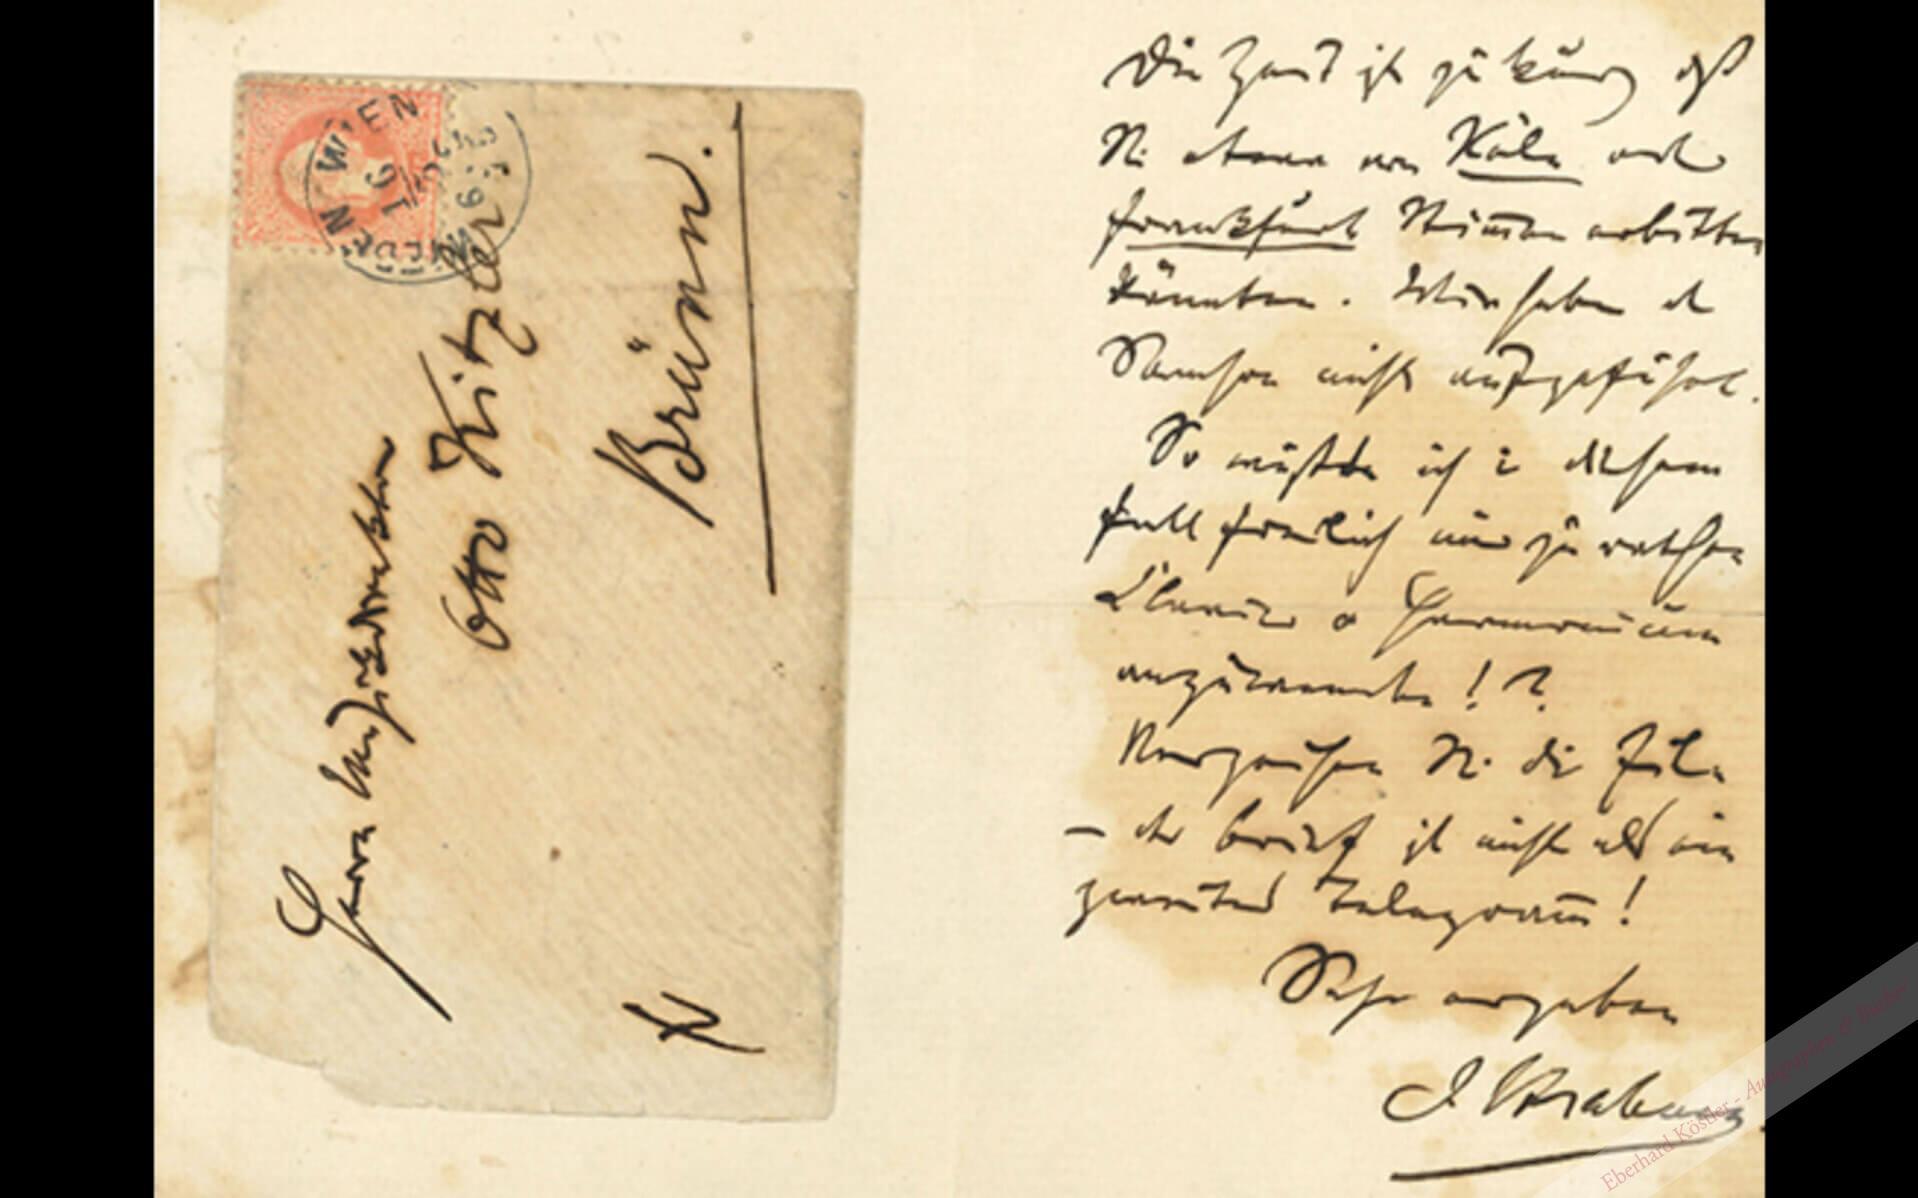 Herrn Musikdirektor
Otto Kitzler
Brünn.
WIEN
WIEDEN
Die Zeit ist zu kurz als daß
Sie etwa von Köln oder
Frankfurt Stimmen erbitten
könnten. Wir haben d
Samson nicht aufgeführt.
So wüßte ich i diesem
Fall freilich nur zu rathen
Clavier o Harmonium
anzuwenden!?
Verzeihen Sie die Eile
– der Brief ist nicht als ein
zweites Telegramm!
Sehr ergeben
J. Brahms
Eberhard Köstler - Autographen & Bücher